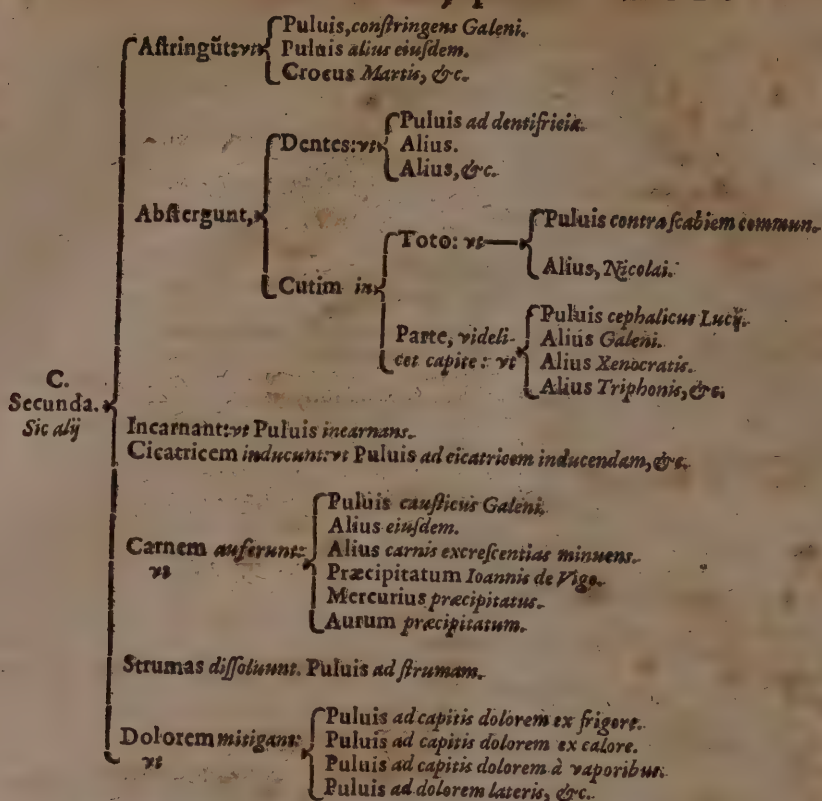 Aſtringūt: vt
Puluis, conſtringens Galeni.
Puluis alius eiuſdem.
Crocus Martis, &c.
Abſtergunt,
Dentes: vt
Puluis ad dentifricia.
Alius.
Alius, &c.
Cutim in
Toto: vt
Puluis contra ſcabiem commun.
Alius, Nicolai.
Parte, videli-
cet capite: vt
Puluis cephalicus Lucij.
Alius Galeni.
Alius Xenocratis.
Alius Triphonis, &c.
C.
Secunda.
Sic alij
Incarnant: vt Puluis incarnans.
Cicatricem inducunt: vt Puluis ad cicatricem inducendam, &c.
Carnem auferunt:
vt
Puluis cauſticus Galeni.
Alius eiuſdem.
Alius carnis excreſcentias minuens.
Præcipitatum Ioannis de Vigo.
Mercurius præcipitatus.
Aurum præcipitatum.
Strumas diſſoluunt. Puluis ad ſtrumam.
Dolorem mitigant:
vt
Puluis ad capitis dolorem ex frigore.
Puluis ad capitis dolorem ex calore.
Puluis ad capitis dolorem à vaporibus.
Puluis ad dolorem lateris, &c.